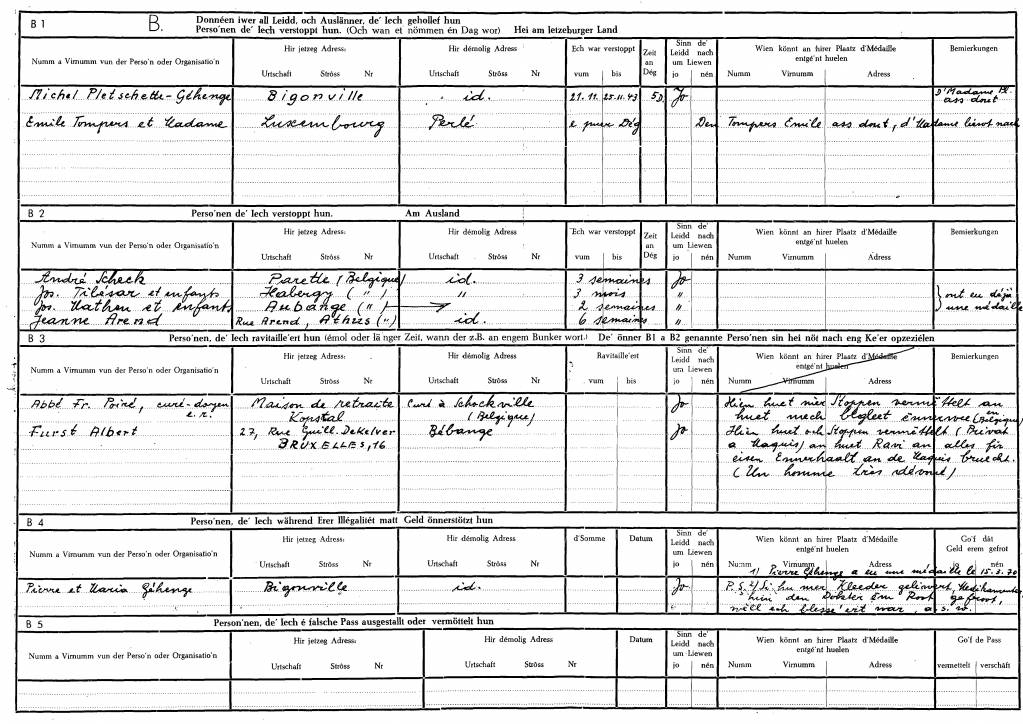 B 1 B. Donnéen iwer all Leidd, och Auslänner, de' Iech gehollef hun
Perso'nen de' Iech verstoppt hun. (Och wan et nömmen én Dag wor) Hei am letzeburger Land
Numm a Virnumm vun der Perso'n oder Organisatio'n
Hir jetzeg Adress:
Urtschaft Ströss Nr
Hir démolig Adress
Urtschaft Ströss Nr
Ech war verstoppt
vum bis
Zeit an Dég
Sinn de' Leidd nach um Liewen
jo nén
Wien könnt an hirer Plaatz d'Médaille entgé'nt huelen
Numm Virnumm Adress
Bemierkungen
Michel Pletschette-Géhenge Bigonville id. 21.11. 25.11.43 5D. Jo D'Madame Pl. ass dout
Emile Tompers et Madame Luxembourg Perlé e puer Dég Den Tompers Emile ass dout, d'Madame liewt nach
B 2 Perso'nen de' Iech verstoppt hun. Am Ausland
Numm a Virnumm vun der Perso'n oder Organisatio'n
Hir jetzeg Adress:
Urtschaft Ströss Nr
Hir démolig Adress
Urtschaft Ströss Nr
Ech war verstoppt
vum bis
Zeit an Dég
Sinn de' Leidd nach um Liewen
jo nén
Wien könnt an hirer Plaatz d'Médaille entgé'nt huelen
Numm Virnumm Adress
Bemierkungen
André Scheck Parette (Belgique) id. 3 semaines Jo
Jos. Tilésar et enfants Habergy ( " ) " 3 mois " } ont eu déjà
Jos. Mathen et enfants Aubange ( " ) 2 semaines " une médaille
Jeanne Arend Rue Arend, Athus ( " ) id. 6 semaines "
B 3 Perso'nen, de' Iech ravitaille'ert hun (émol oder lä'nger Zeit, wann der z.B. an engem Bunker wort.) De' önner B1 a B2 genannte Perso'nen sin hei nöt nach eng Ke'er opzezielen
Numm a Virnumm vun der Perso'n oder Organisatio'n
Hir jetzeg Adress:
Urtschaft Ströss Nr
Hir démolig Adress
Urtschaft Ströss Nr
Ravitaille'ert
vum bis
Sinn de' Leidd nach um Liewen
jo nén
Wien könnt an hirer Plaatz d'Médaille entgé'nt huelen
Numm Virnumm Adress
Bemierkungen
Abbé Fr. Poiré, curé-doyen e.r. Maison de retraite Konstal Curé à Schockville (Belgique) Jo Hien huet mer Stoppen vermëttelt an
huet mech begleet ënnerwee (en Belgique)
Furst Albert 27, Rue Guill. DeKelver BRUXELLES, 16 Bébange Jo Hien huet och Stoppen vermëttelt (Privat
a Maquis) an huet Ravi an alles fir
eisen Ennerhaalt an de Maquis bruecht.
(Un homme très dévoué)
B 4 Perso'nen, de' Iech während Erer Illégalitét matt Geld önnerstötzt hun
Numm a Virnumm vun der Perso'n oder Organisatio'n
Hir jetzeg Adress:
Urtschaft Ströss Nr
Hir démolig Adress:
Urtschaft Ströss Nr
d'Somme
Datum
Sinn de' Leidd nach um Liewen
jo nén
Wien könnt an hirer Plaatz d'Médaille entgé'nt huelen
Numm Virnumm Adress
Go'f dát Geld erem gefrot
nén
1) Pierre Géhenge a eu une médaille le 15.3.70
Pierre et Maria Géhenge Bigonville id. Jo P.S. 2) Si hu mer Kleeder geliwwert, Medikamenter,
hunn den Dokter ëm Rot gefroot,
well ech blesse'ert war, a.s.w.
B 5 Person'nen, de' Iech é falsche Pass ausgestallt oder vermöttelt hun
Numm a Virnumm vun der Perso'n oder Organisatio'n
Hir jetzeg Adress:
Urtschaft Ströss Nr
Hir démolig Adress
Urtschaft Ströss Nr
Datum
Sinn de' Leidd nach um Liewen
jo nén
Wien könnt an hirer Plaatz d'Médaille entgé'nt huelen
Numm Virnumm Adress
Go'f de Pass
vermettelt verschäft